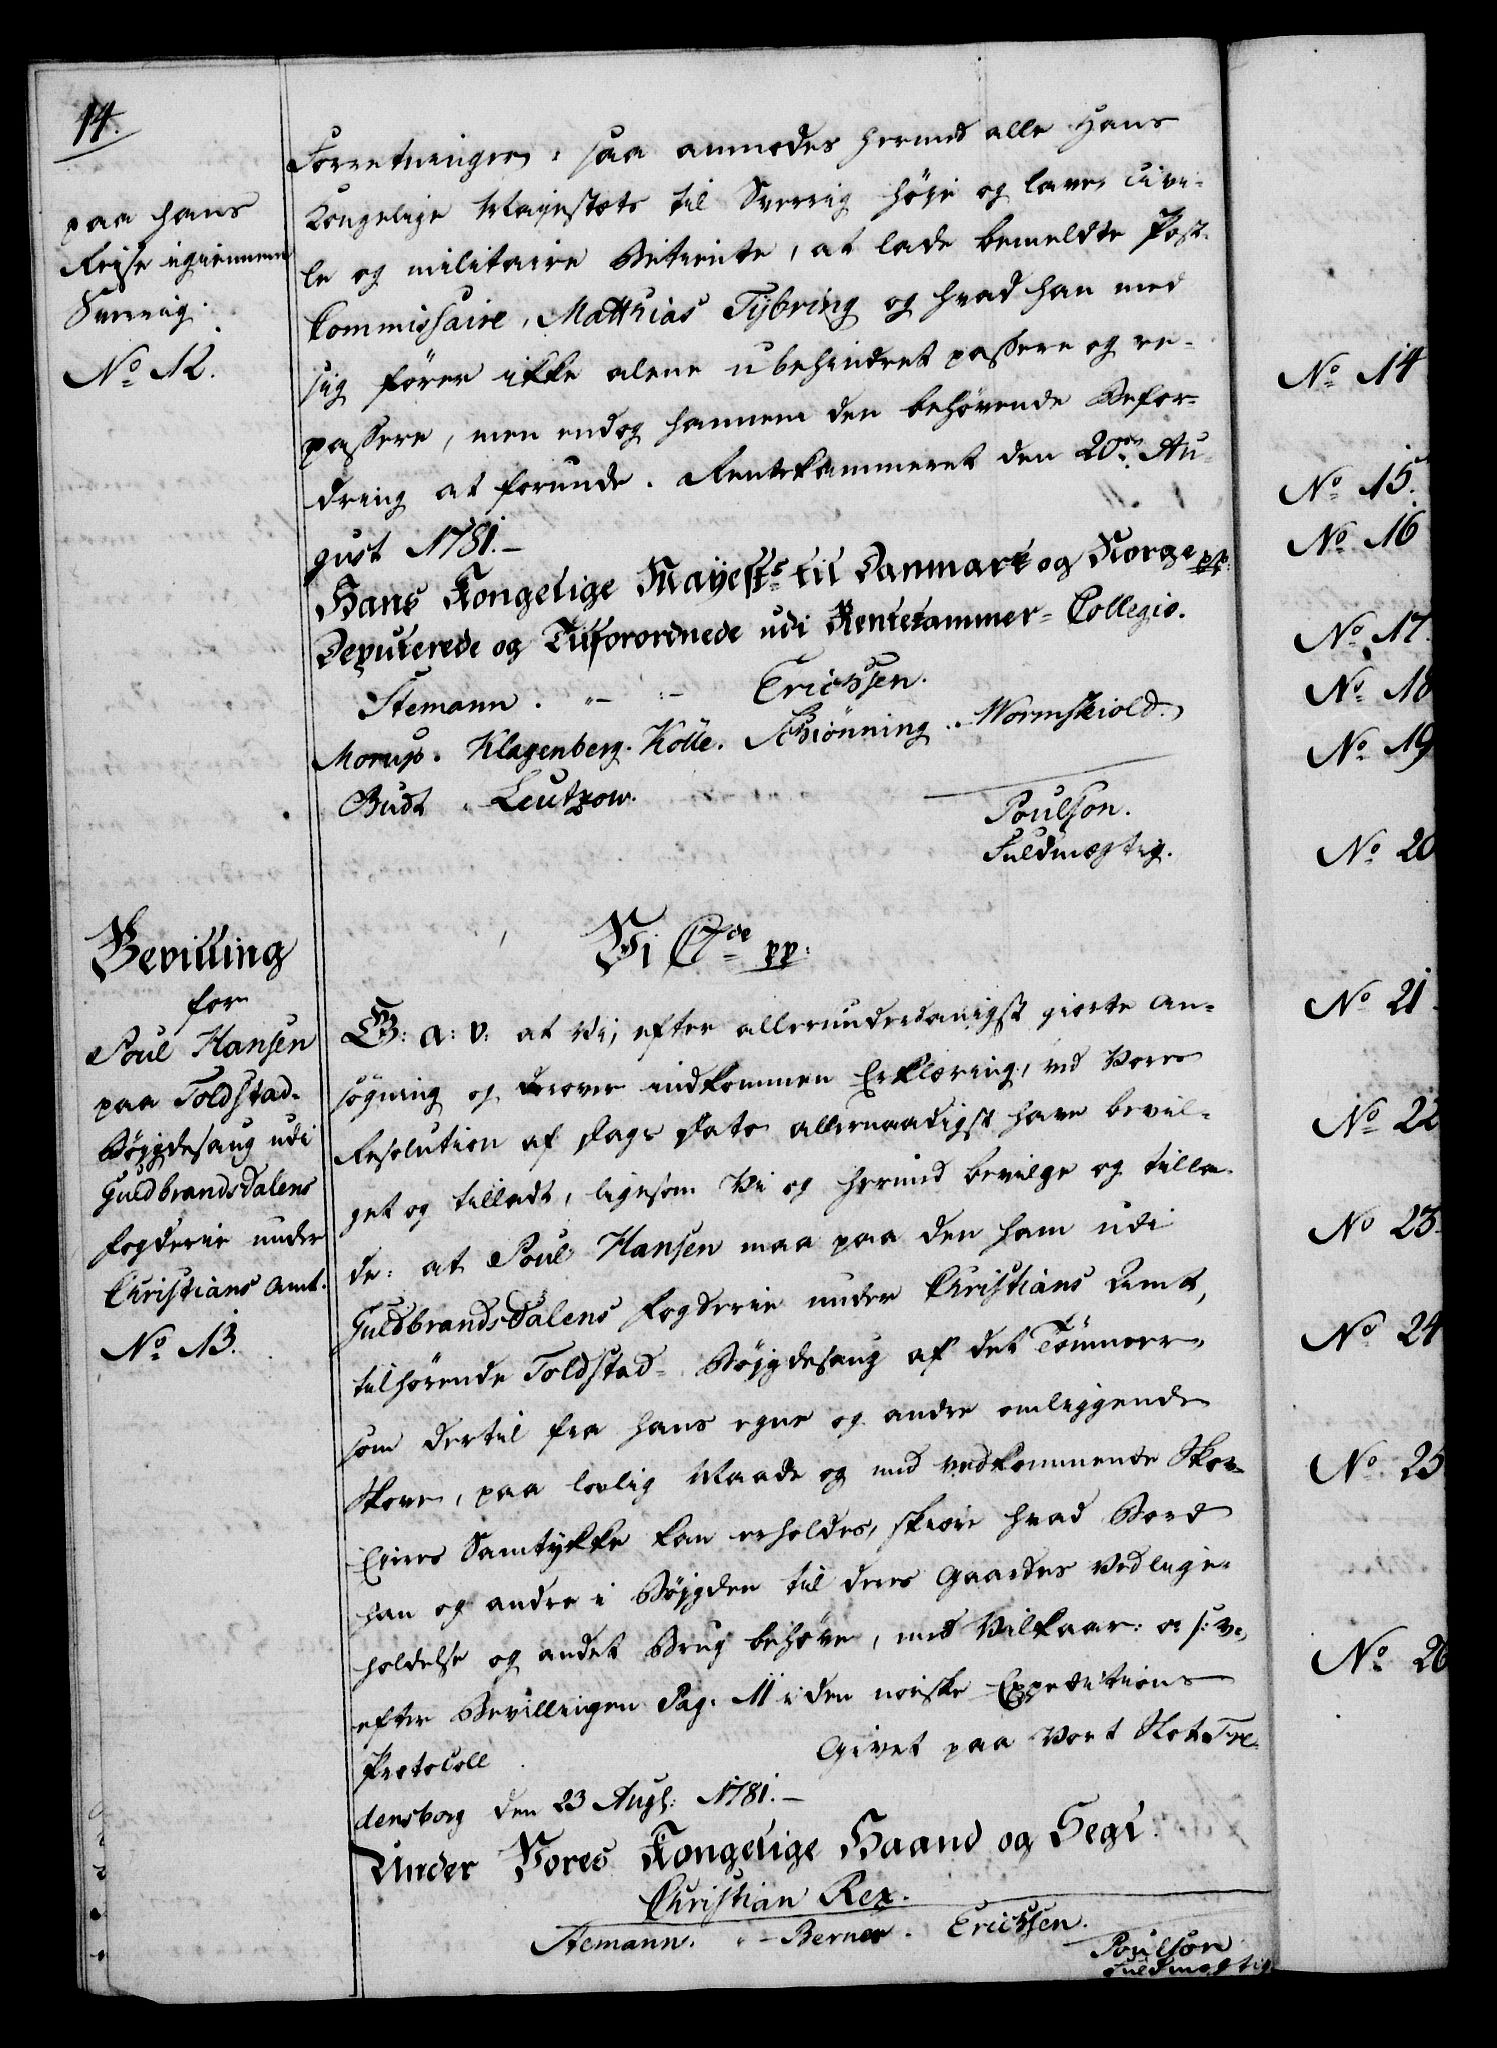 14.
paa hans
Reise igiennem
Sverrig.
No. 12.
Forretninger, saa anmodes hermed alle Hans
Kongelige Mayestæts til Sverrig höye og lave, Civi-
le og militaire Betiente, at lade bemeldte Post-
Commissaire, Matthias Tybring og hvad han med
sig förer ikke alene ubehindret passere og re-
passere, men endog hannem den behövende Befor-
dring at forunde. Rentekammeret den 20de Au-
gust 1781.-
Hans Kongelige Mayestts til Danmark og Norge pp:
Deputerede og Tilforordnede udi Rentekammer-Collegio.
Stemann. -- Erichsen.
Morup. Klagenberg. Kölle. Schiönning. Wormskiold.
Budt. Leutzow.
Poulson.
Fuldmægtig.
Bevilling
for
Poul Hansen
paa Toldstad-
Böygdesaug udi
Guldbrandsdalens
Fogderie under
Christians Amt.
No. 13.
Vi C 7de pp:
G: A: V: at Vi, efter allerunderdanigst giorte An-
sögning og derover indkommen Erklæring, ved Vores
Resolution af Dags Dato allernaadigst have bevil-
get og tilladt, ligesom Vi og hermed bevilge og tilla-
de: at Poul Hansen maa paa den ham udi
Guldbrandsdalens Fogderie under Christians Amt,
tilhörende Toldstad- Böygdesaug af det Tömmer,
som dertil fra hans egne og andre omliggende
Skove, paa lovlig Maade og med vedkommende Skov-
Eiers Samtykke kan erholdes, skiære hvad Bord
han og andre i Böygden til deres Gaardes Vedlige-
holdelse og andet Brug behöve, med Vilkaar: o: s: v:,
efter Bevillingen Pag. 11 i den norske Expeditions
Protocoll. Givet paa Vort Slot Fre-
densborg den 23 Augs: 1781.-
Under Vores Kongelige Haand og Segl.
Christian Rex.
Stemann. -- Berner. Erichsen.
Poulson
Fuldmægtig
No. 14
No. 15.
No. 16
No. 17.
No. 18
No. 19
No. 20
No. 21.
No. 22
No. 23
No. 24
No. 25
No. 26